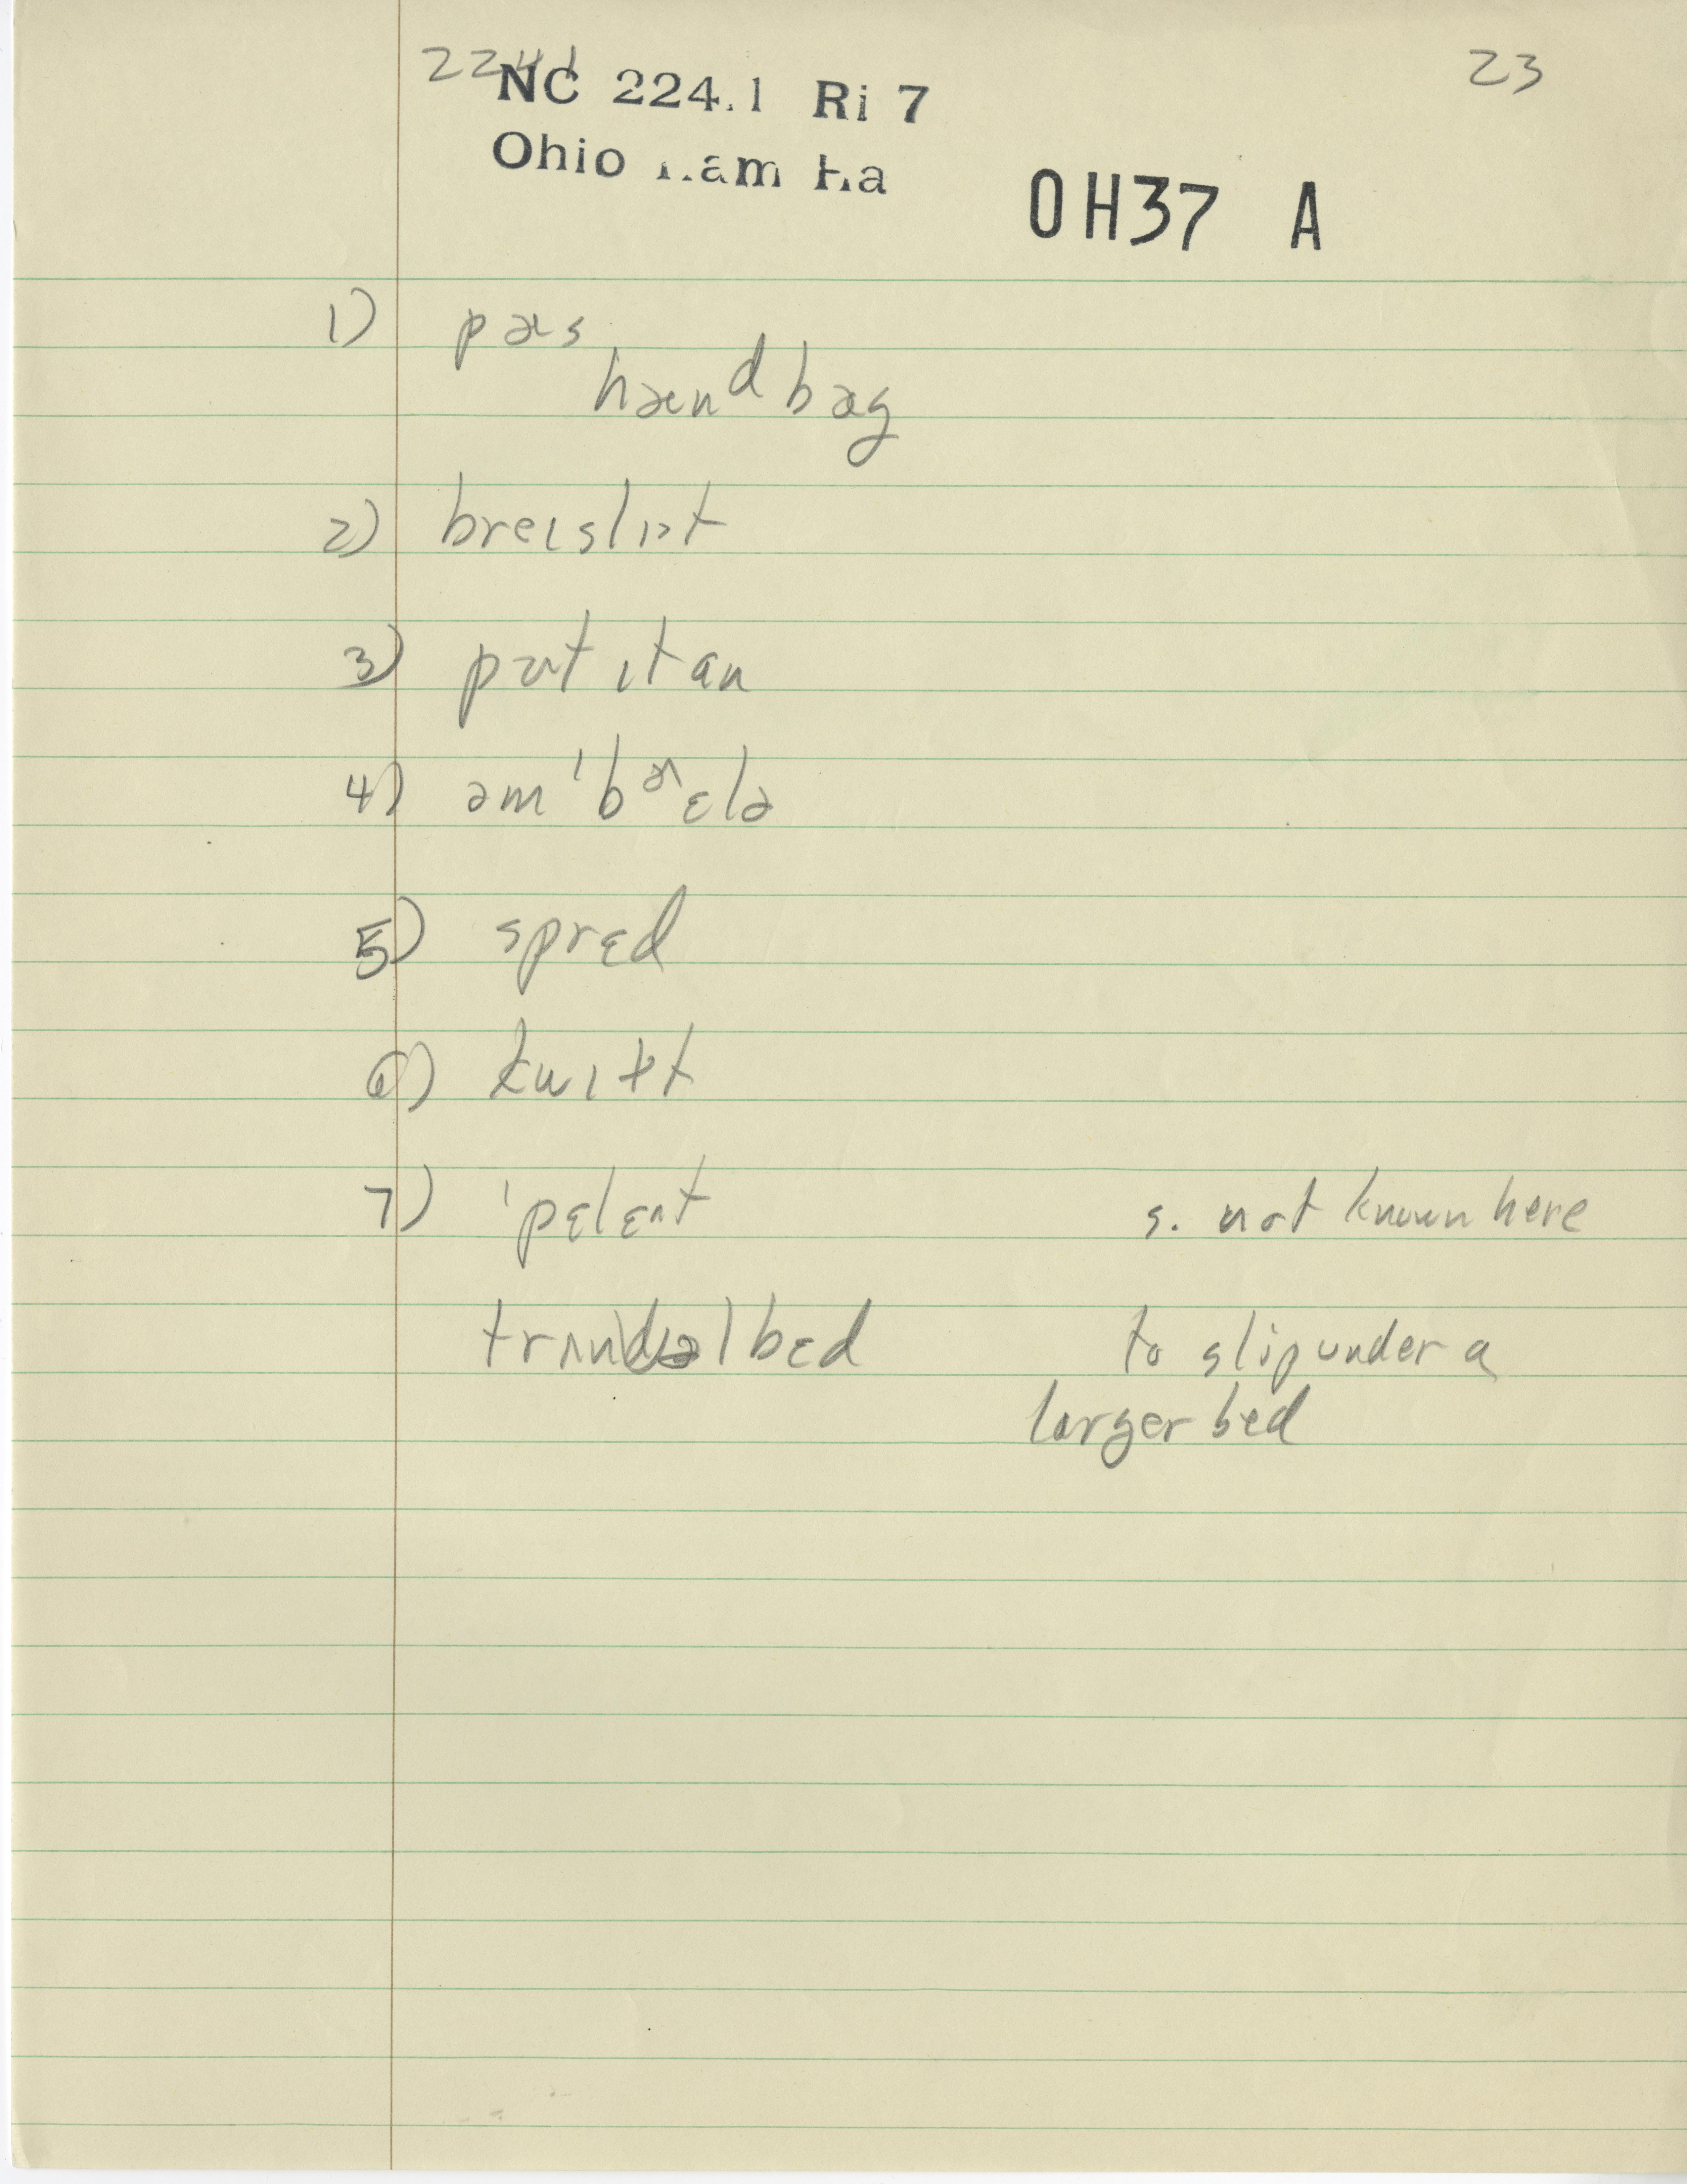 224.1
23
NC 224.1 Ri 7
Ohio Ham Ha
OH37 A
1) pɚs
hænᵈbæg
2) breɪslɪt
3) put ɪt an
4) əmˈbᵊrɛlə
5) sprɛd
6) kwɪɫt
7) ˈpɛlɛnt s. not known here
trʌndəlbɛd to slip under a
larger bed